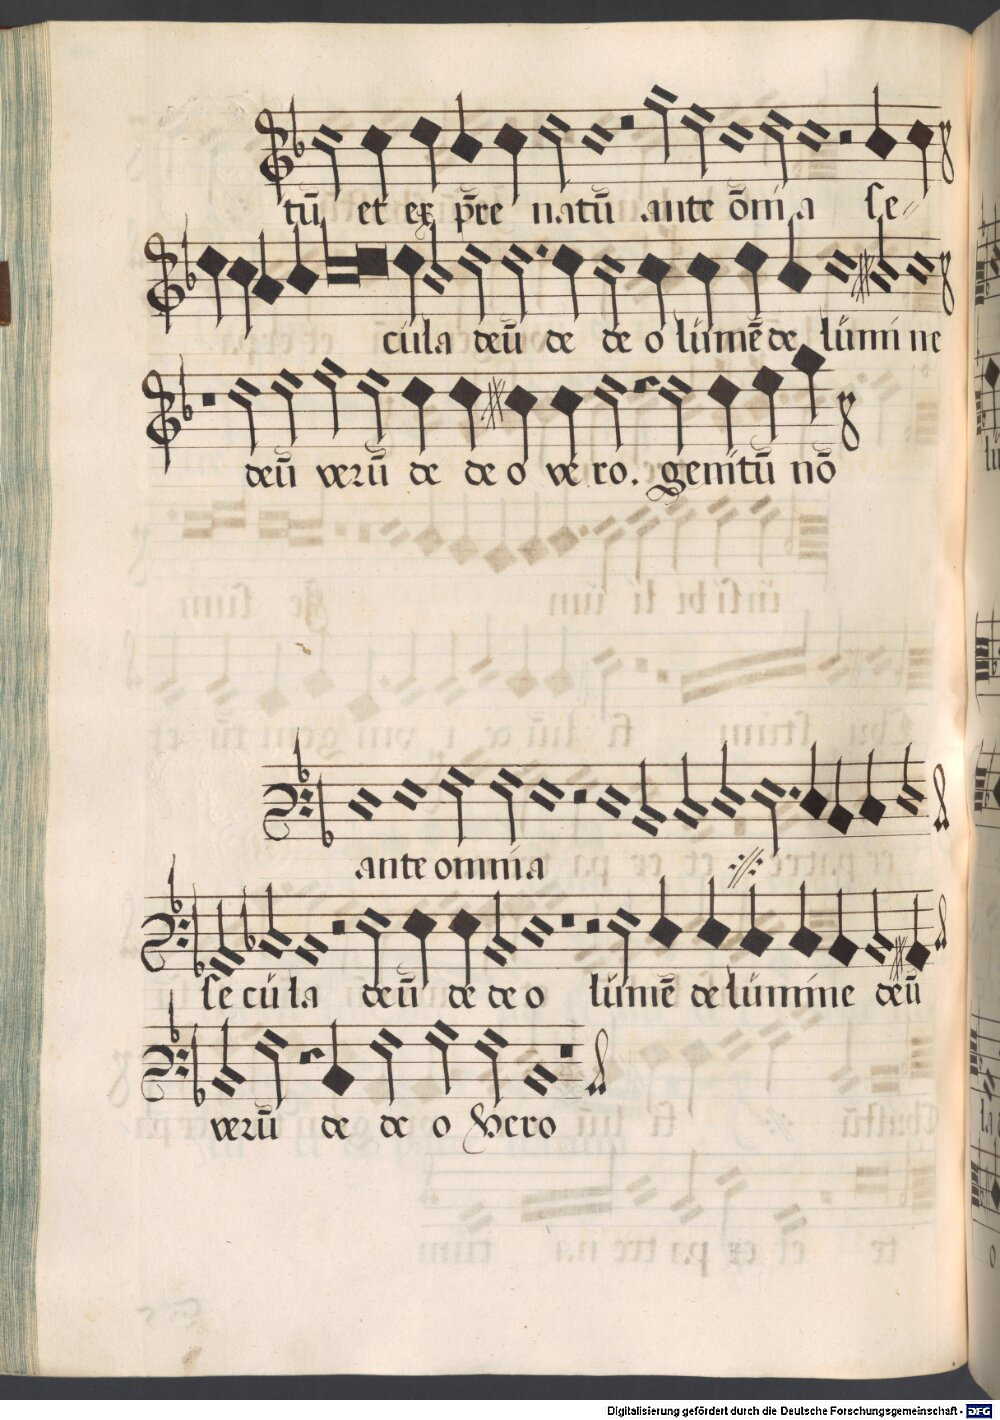 tū et ex p̄re natū ante ōnia se
cula deū de de o lumē de lumine
deū verū de de o vero. genitū nō
ante omnia
secula deū de de o lumē de lumine deū
verū de de o Vero
Digitalisierung gefördert durch die Deutsche Forschungsgemeinschaft - DFG